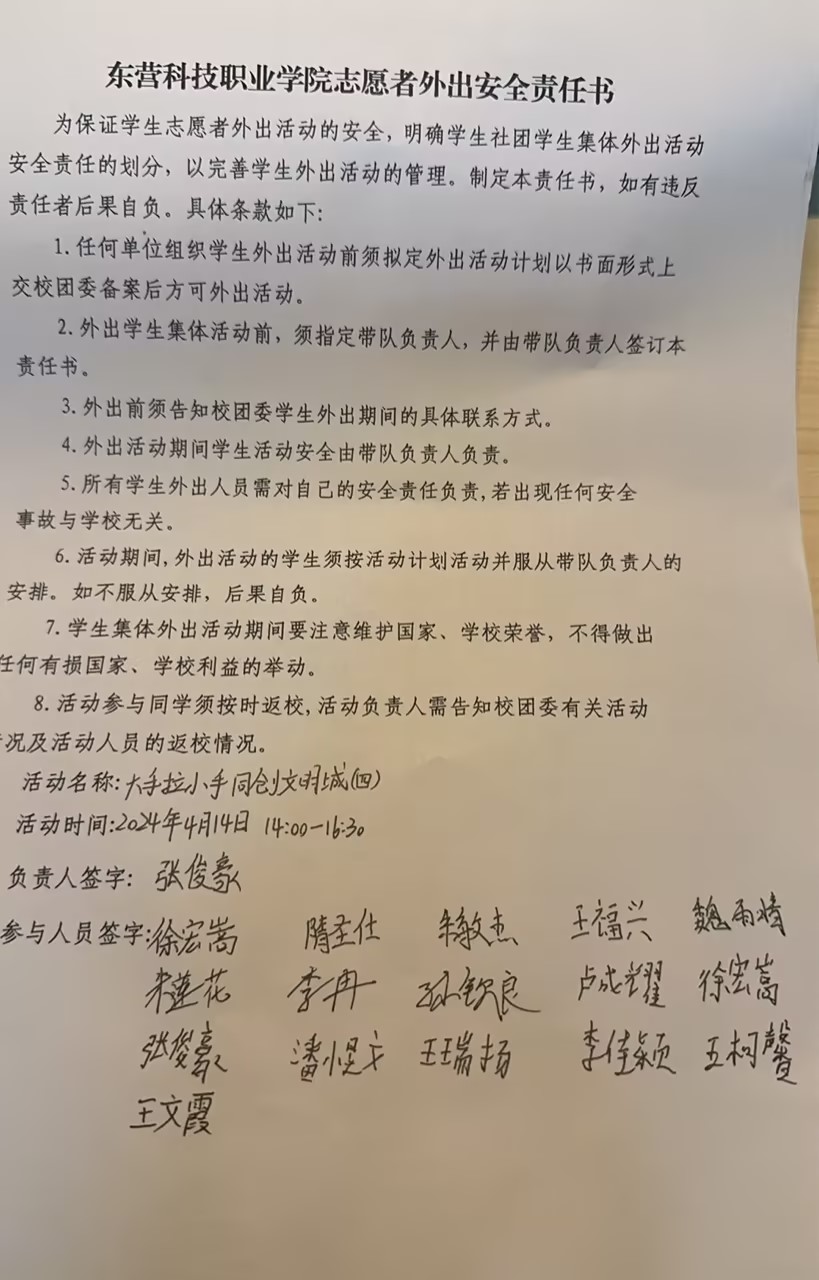 东营科技职业学院志愿者外出安全责任书
为保证学生志愿者外出活动的安全，明确学生社团学生集体外出活动
安全责任的划分，以完善学生外出活动的管理。制定本责任书，如有违反
责任者后果自负。具体条款如下：
1.任何单位组织学生外出活动前须拟定外出活动计划以书面形式上
交校团委备案后方可外出活动。
2.外出学生集体活动前，须指定带队负责人，并由带队负责人签订本
责任书。
3.外出前须告知校团委学生外出期间的具体联系方式。
4.外出活动期间学生活动安全由带队负责人负责。
5.所有学生外出人员需对自己的安全责任负责,若出现任何安全
事故与学校无关。
6.活动期间,外出活动的学生须按活动计划活动并服从带队负责人的
安排。如不服从安排，后果自负。
7.学生集体外出活动期间要注意维护国家、学校荣誉，不得做出
任何有损国家、学校利益的举动。
8.活动参与同学须按时返校,活动负责人需告知校团委有关活动
况及活动人员的返校情况。
活动名称:大手拉小手同创文明城(四)
活动时间:2024年4月14日 14:00-16:30
负责人签字: 张俊豪
参与人员签字:徐宏嵩 隋圣仕 朱敏杰 王福兴 魏雨婧
朱莲花 李冉 孙钦良 卢成耀 徐宏嵩
张俊豪 王瑞扬 李佳颖 王柯馨
王文霞